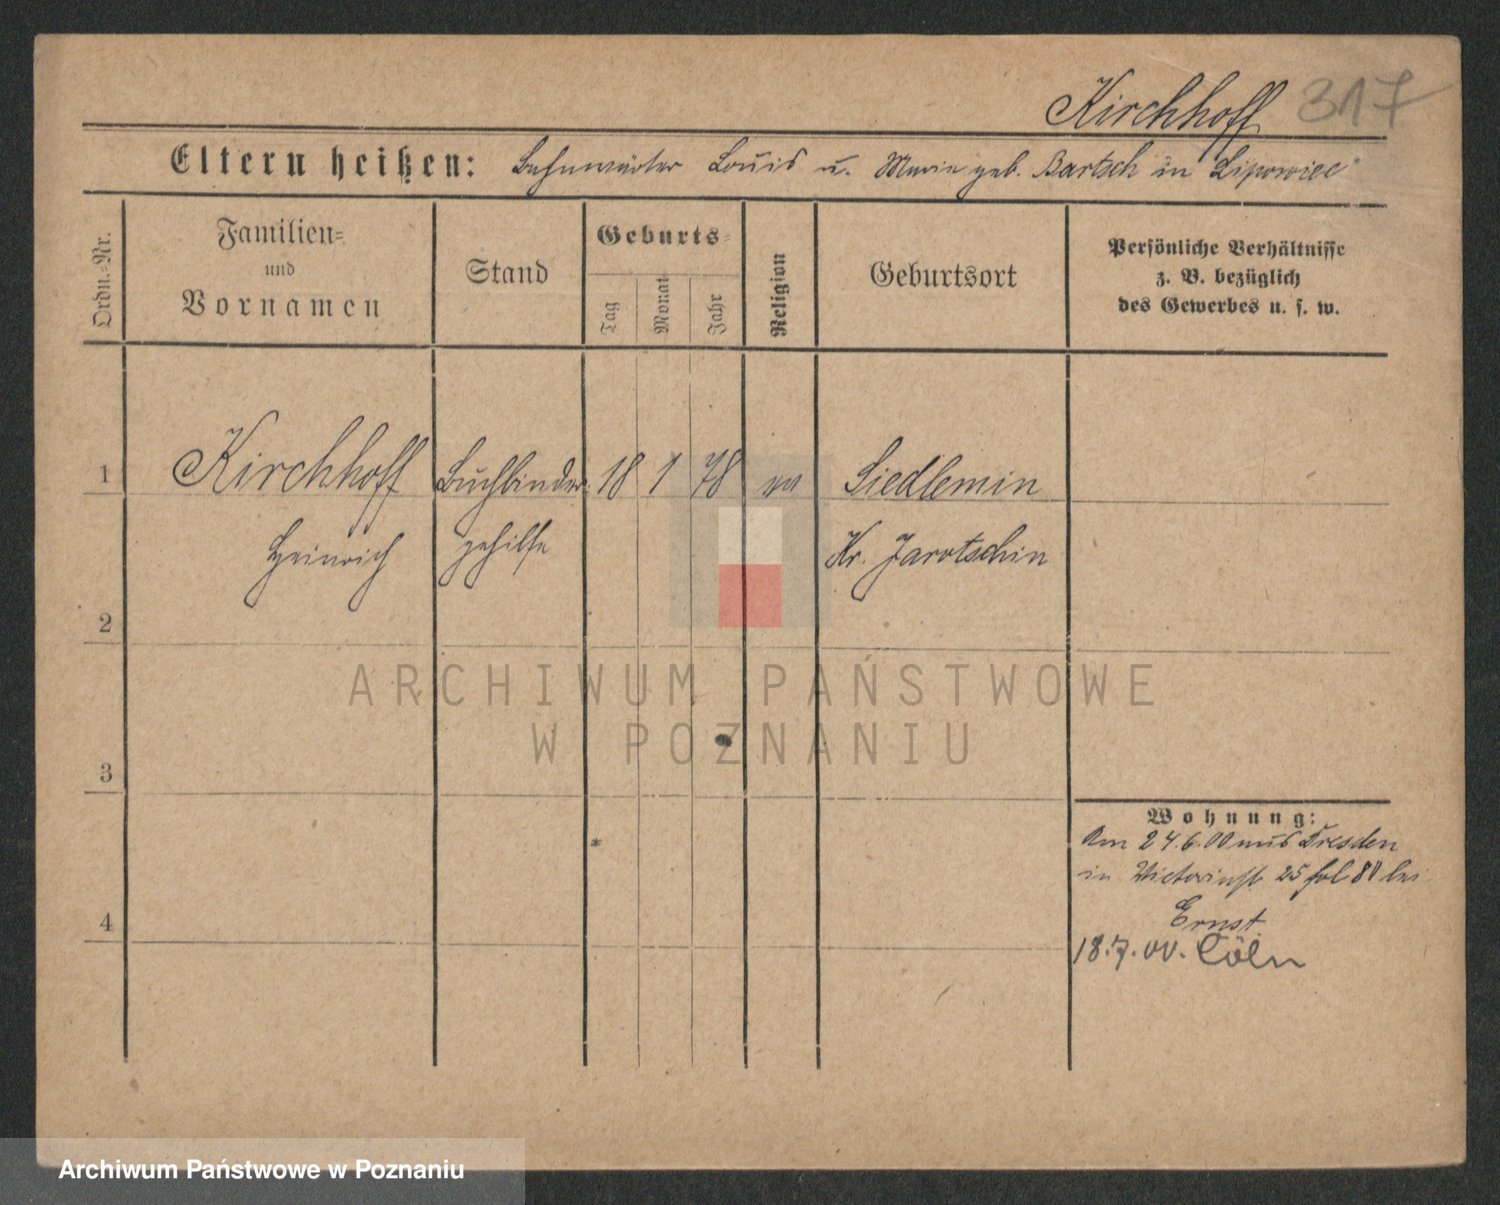 Kirchhoff 317
Eltern heißen: Bahnwärter Louis u. Marie geb. Bartsch in Lipowiec
Ordn.=Nr.
Familien=
und
Vornamen
Stand
Geburts=
Tag
Monat
Jahr
Religion
Geburtsort
Persönliche Verhältnisse
z. B. bezüglich
des Gewerbes u. s. w.
1 Kirchhoff Buchbinder 18 1 78 ev Siedlemin
Heinrich gehilfe Kr. Jarotschin
2
ARCHIWUM PAŃSTWOWE
W POZNANIU
3
Wohnung:
Am 24.6.00 aus Dresden
in Victoriast. 25 bei
4 Ernst
18.7.00. Cöln
Archiwum Państwowe w Poznaniu